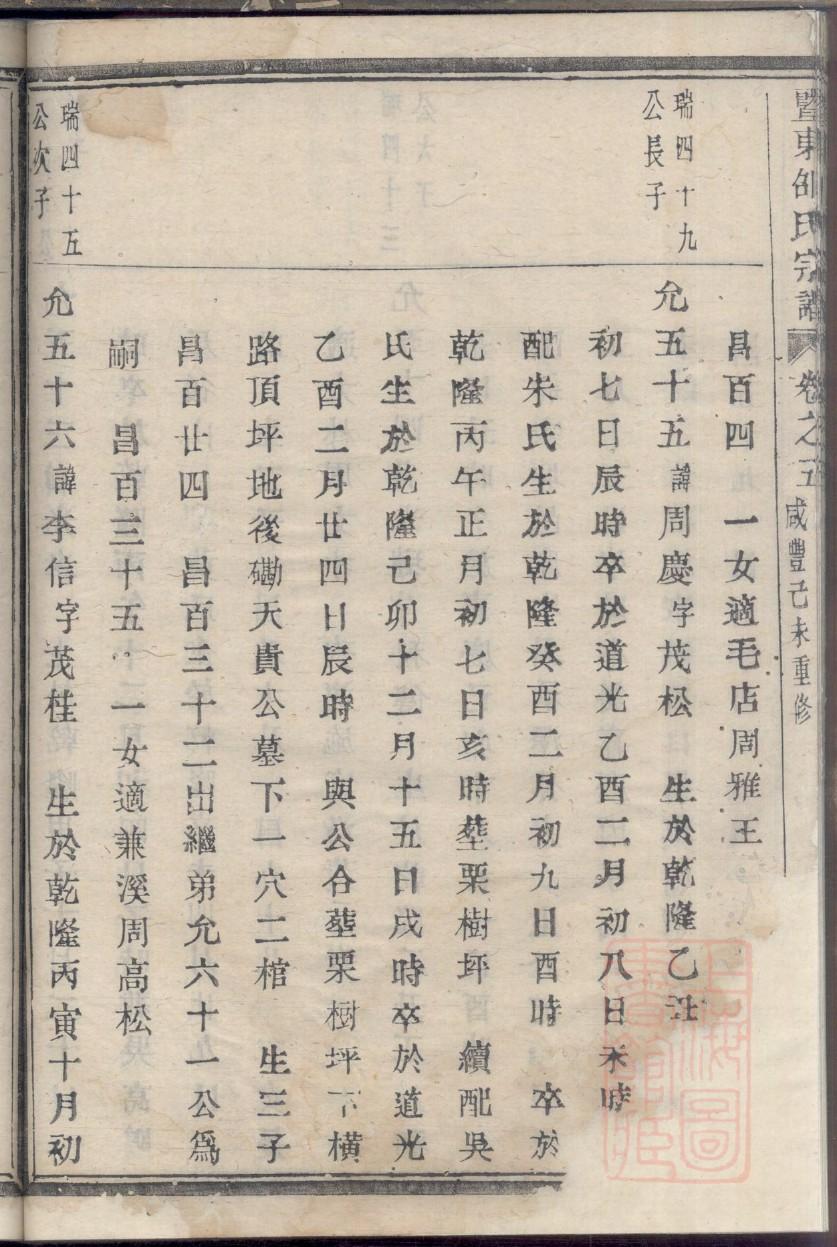 暨東邵氏宗譜 卷之五 咸豐己未重修
昌百四 一女適毛店周雅王
瑞四十九
公長子
允五十五諱周慶字茂松 生於乾隆乙
初七日辰時卒於道光乙酉二月初八日未時
配朱氏生於乾隆癸酉二月初九日酉時 卒於
乾隆丙午正月初七日亥時塟栗樹坪 續配吳
氏生於乾隆己卯十二月十五日戌時卒於道光
乙酉二月廿四日辰時 與公合塟栗樹坪下橫
路頂坪地後磡天貴公墓下一穴二棺 生三子
昌百廿四 昌百三十二出繼弟允六十一公爲
嗣 昌百三十五 一女適兼溪周高松
瑞四十五
公次子
允五十六諱李信字茂桂 生於乾隆丙寅十月初
上海圖書館藏